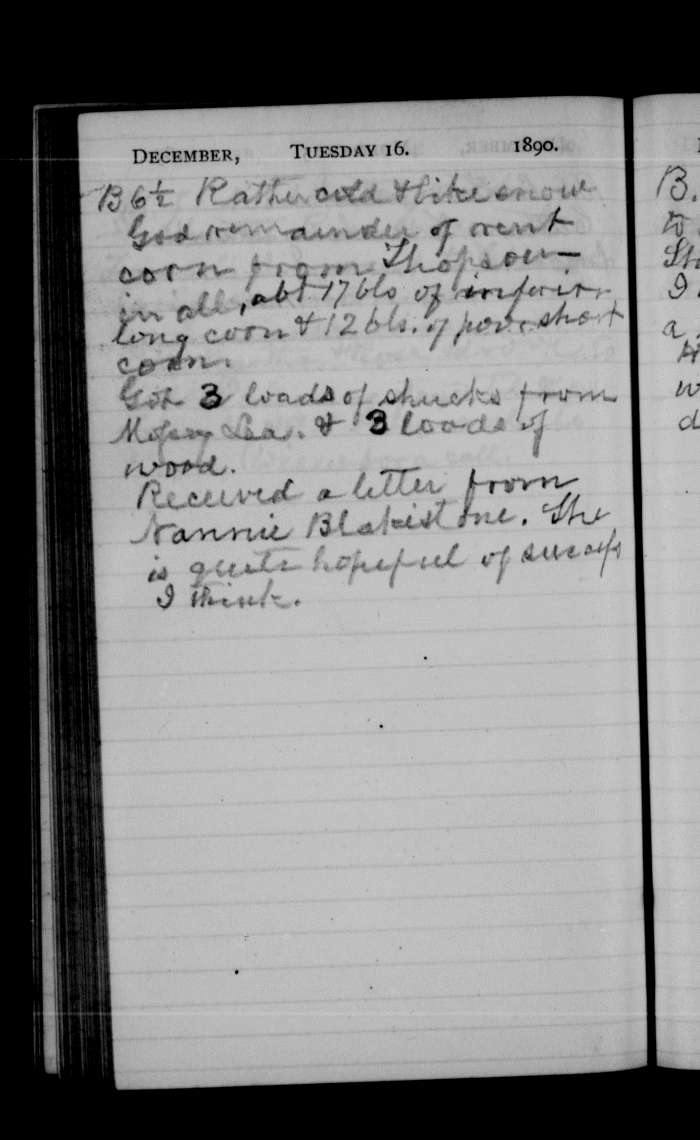 DECEMBER, TUESDAY 16. 1890.
B 6½ Rather cold & like snow
God remainder of rent
corn from Thopson—
in all, abt 17 bls of inferior
long corn & 12 bls. of poor short
corn.
Got 3 loads of shucks from
Lea. & 3 loads of
wood.
Received a letter from
Nannie Blakistone. She
is quite hopeful of success
I think.
B.
to
I
a
w
d